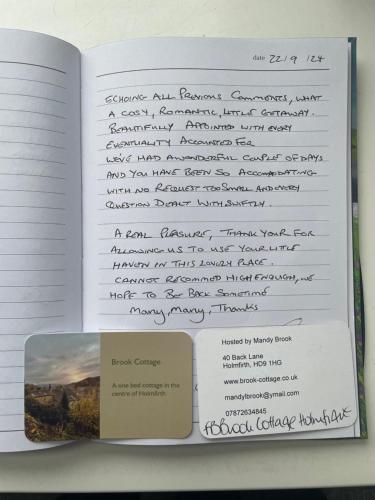 date 22/9/24
ECHOING ALL PREVIOUS COMMENTS, WHAT
A COSY, ROMANTIC, LITTLE GETAWAY.
BEAUTIFULLY APPOINTED WITH EVERY
EVENTUALITY ACCOUNTED FOR
WE'VE HAD A WONDERFUL COUPLE OF DAYS
AND YOU HAVE BEEN SO ACCOMODATING
WITH NO REQUEST TOO SMALL AND EVERY
QUESTION DEALT WITH SWIFTLY.
A REAL PLEASURE, THANK YOUR FOR
ALLOWING US TO USE YOUR LITTLE
HAVEN IN THIS LOVELY PLACE.
CANNOT RECOMMED HIGH ENOUGH, WE
HOPE TO BE BACK SOMETIME
Many, Many, Thanks
Brook Cottage
A one bed cottage in the
centre of Holmfirth
Hosted by Mandy Brook
40 Back Lane
Holmfirth, HD9 1HG
www.brook-cottage.co.uk
mandylbrook@ymail.com
07872634845
FB Brook Cottage Holmfirth